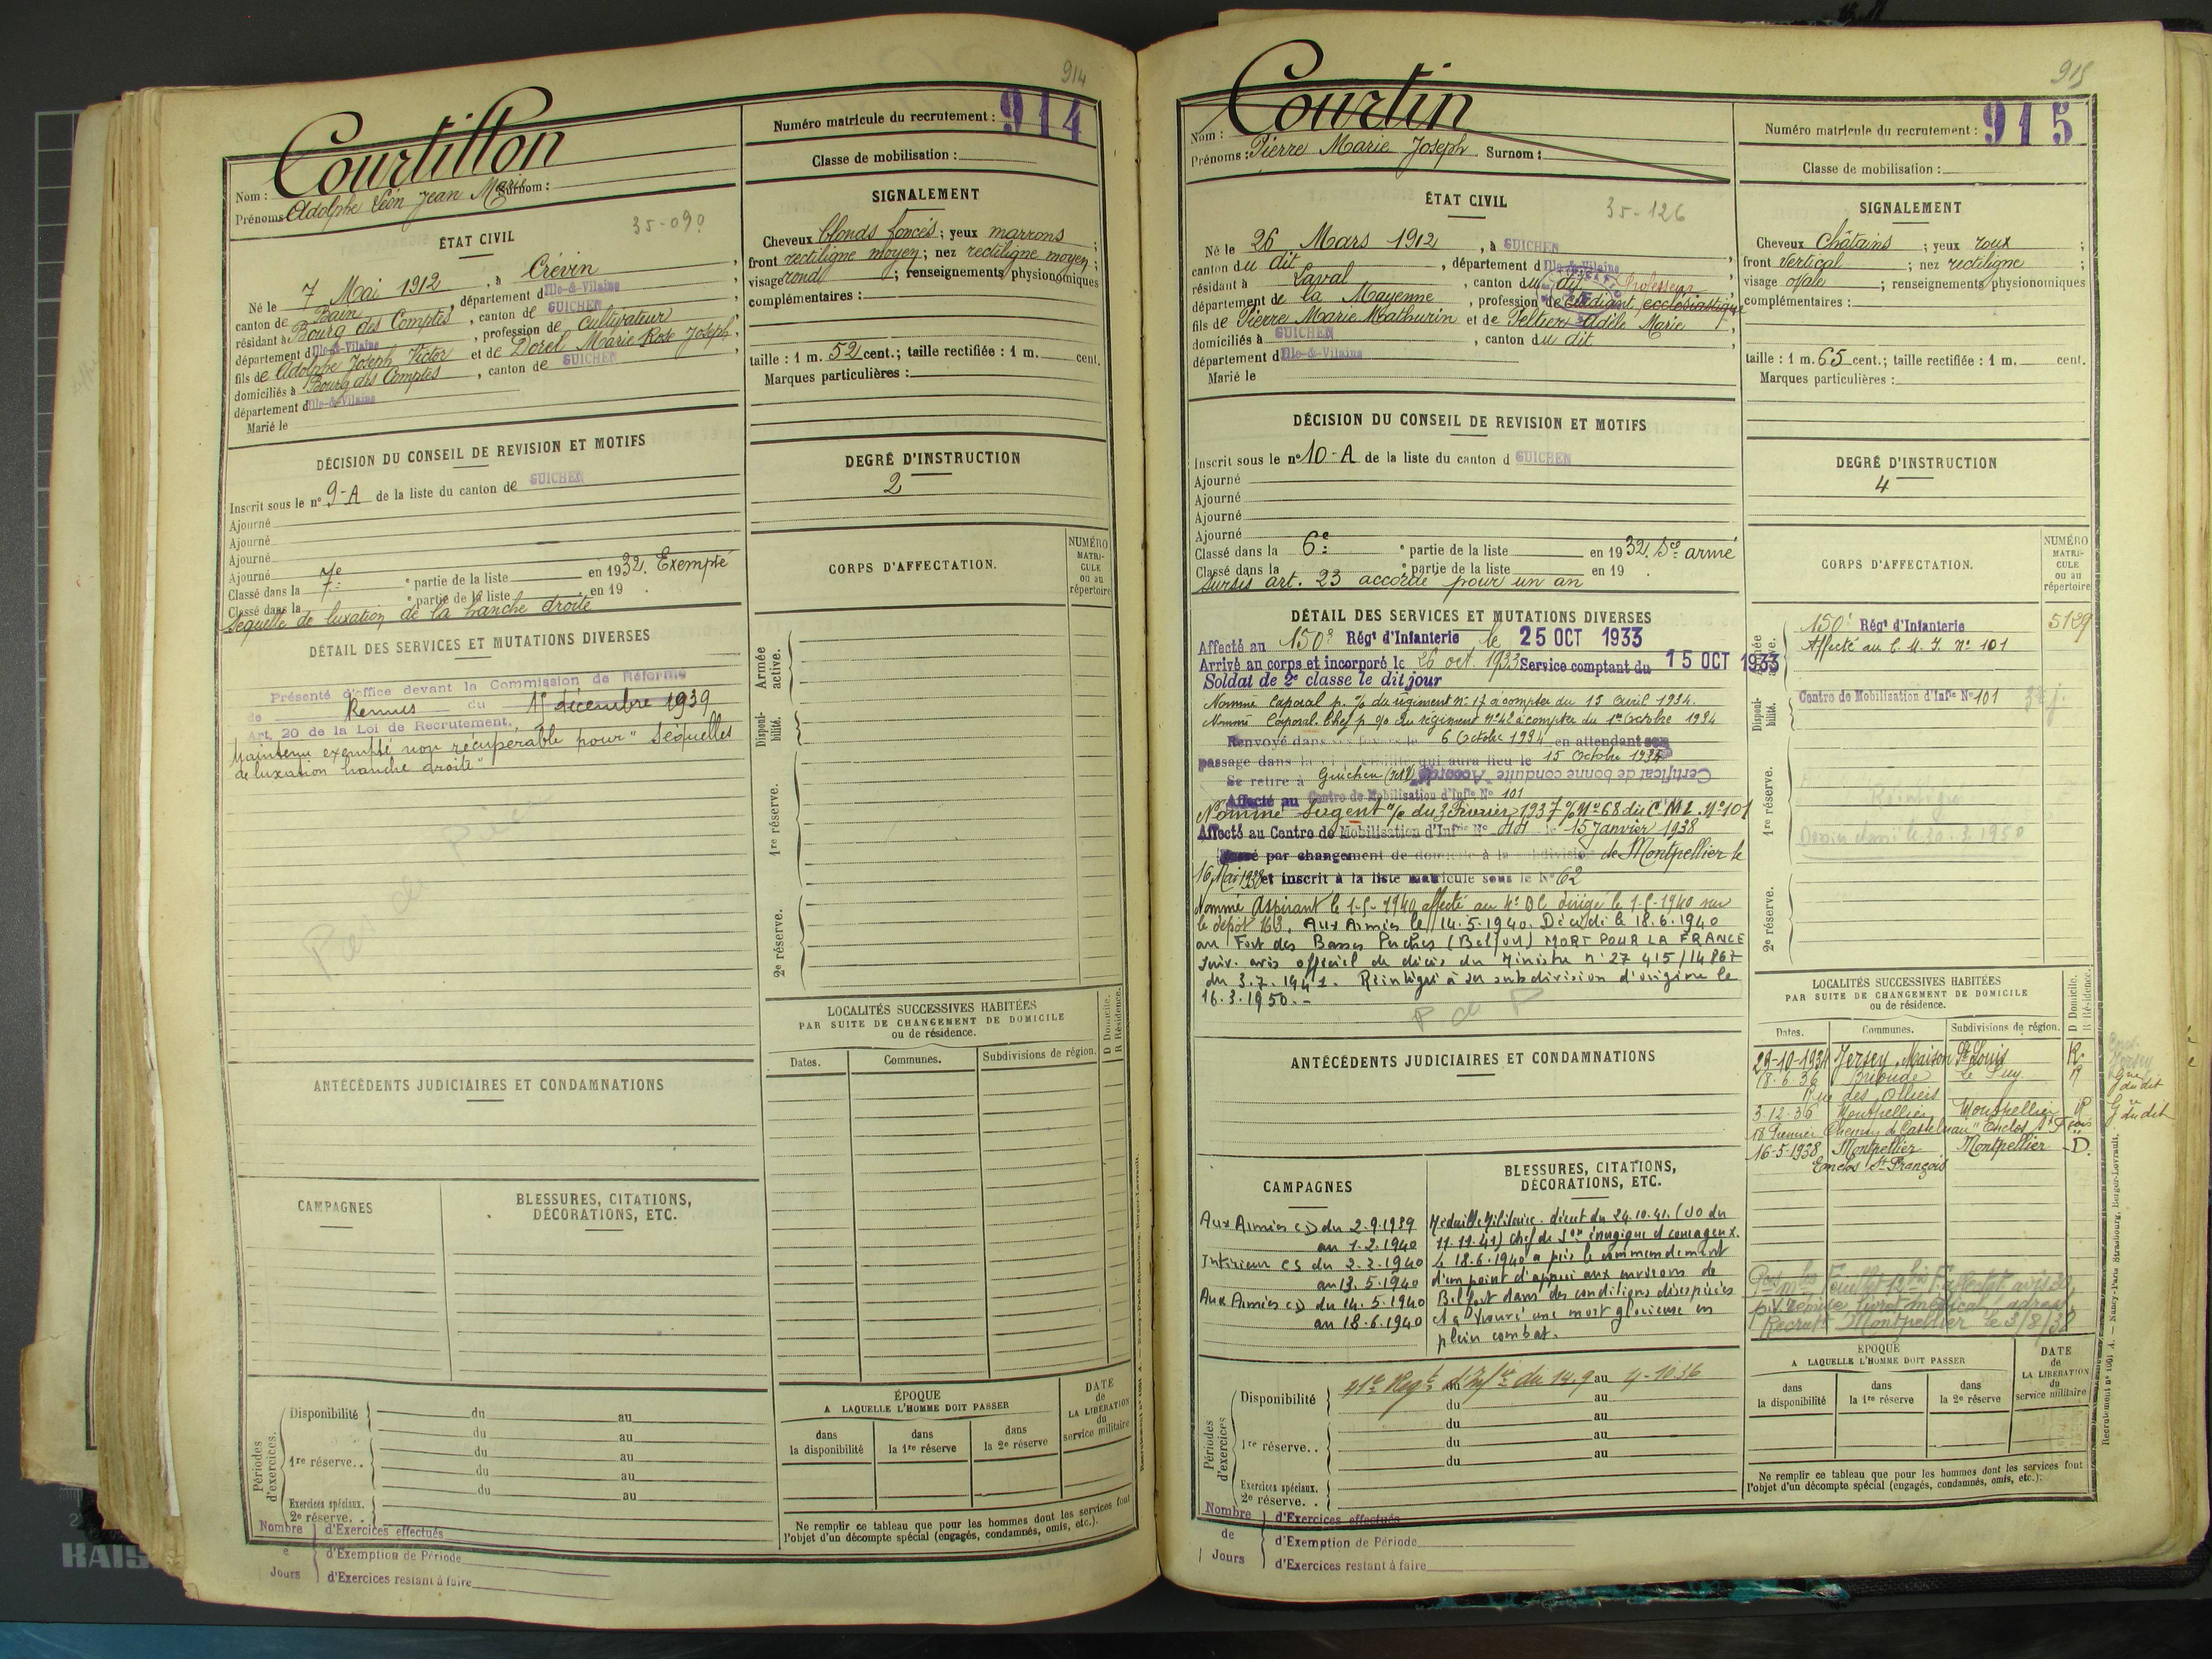 914
Courtillon
Nom :
Prénoms Adolphe Léon Jean Marie Surnom :
Numéro matricule du recrutement : 914
Classe de mobilisation :
35-090
ÉTAT CIVIL
Né le 7 Mai 1912, à Crévin,
canton de Bain, département d Ille-&-Vilaine
résidant à Bourg des Comptes, canton de GUICHEN
département d Ille-&-Vilaine, profession de cultivateur
fils de Adolphe Joseph Victor et de Dorel Marie Rose Joseph,
domiciliés à Bourg des Comptes, canton de GUICHEN
département d Ille-&-Vilaine
Marié le
SIGNALEMENT
Cheveux blonds foncés ; yeux marrons ;
front rectiligne moyen ; nez rectiligne moyen ;
visage rond ; renseignements physionomiques
complémentaires :
taille : 1 m. 52 cent.; taille rectifiée : 1 m. cent.
Marques particulières :
DÉCISION DU CONSEIL DE REVISION ET MOTIFS
Inscrit sous le n° 9-A de la liste du canton de GUICHEN
Ajourné
Ajourné
Ajourné
Ajourné
Classé dans la 7e ° partie de la liste en 1932. Exempté
Classé dans la ° partie de la liste en 19 .
Séquelle de luxation de la hanche droite
DEGRÉ D'INSTRUCTION
2
DÉTAIL DES SERVICES ET MUTATIONS DIVERSES
Présenté d'office devant la Commission de Réforme
de Rennes du 15 décembre 1939
Art. 20 de la Loi de Recrutement.
Maintenu exempté non récupérable pour "Séquelles
de luxation hanche droite"
Pas de Pièce
CORPS D'AFFECTATION.
NUMÉRO MATRI- CULE ou au répertoire
Armée active.
Disponi- bilité.
1re réserve.
2e réserve.
LOCALITÉS SUCCESSIVES HABITÉES
PAR SUITE DE CHANGEMENT DE DOMICILE
ou de résidence.
Dates. Communes. Subdivisions de région. D Domicile. R Résidence.
ANTÉCÉDENTS JUDICIAIRES ET CONDAMNATIONS
CAMPAGNES
BLESSURES, CITATIONS,
DÉCORATIONS, ETC.
Périodes d'exercices.
Disponibilité du au
du au
1re réserve.. du au
du au
du au
Exercices spéciaux.
2e réserve. .
Nombre de Jours
d'Exercices effectués
d'Exemption de Période
d'Exercices restant à faire
ÉPOQUE
A LAQUELLE L'HOMME DOIT PASSER
dans la disponibilité
dans la 1re réserve
dans la 2e réserve
DATE de LA LIBÉRATION du service militaire
Ne remplir ce tableau que pour les hommes dont les services font
l'objet d'un décompte spécial (engagés, condamnés, omis, etc.).
KAIS
915
Courtin
Nom :
Prénoms : Pierre Marie Joseph Surnom :
Numéro matricule du recrutement : 915
Classe de mobilisation :
ÉTAT CIVIL
35-126
Né le 26 Mars 1912, à GUICHEN
canton du dit, département d Ille-&-Vilaine
résidant à Laval, canton du dit Professeur
département de la Mayenne, profession de étudiant ecclésiastique
fils de Pierre Marie Mathurin et de Peltier Adèle Marie
domiciliés à GUICHEN, canton du dit,
département d Ille-&-Vilaine
Marié le
SIGNALEMENT
Cheveux Châtains ; yeux roux ;
front vertical ; nez rectiligne ;
visage ovale ; renseignements physionomiques
complémentaires :
taille : 1 m. 65 cent.; taille rectifiée : 1 m. cent.
Marques particulières :
DÉCISION DU CONSEIL DE REVISION ET MOTIFS
Inscrit sous le n° 10-A de la liste du canton d GUICHEN
Ajourné
Ajourné
Ajourné
Ajourné
Classé dans la 6e ° partie de la liste en 1932. Sce armé
Classé dans la ° partie de la liste en 19 .
Sursis art. 23 accordé pour un an
DEGRÉ D'INSTRUCTION
4
DÉTAIL DES SERVICES ET MUTATIONS DIVERSES
Affecté au 150e Régt d'Infanterie le 25 OCT 1933
Arrivé au corps et incorporé le 26 oct. 1933 Service comptant du 15 OCT 1933
Soldat de 2e classe le dit jour
Nommé Caporal p. % du régiment n° 17 à compter du 15 Avril 1934.
Nommé Caporal Chef p. % du régiment n° 42 à compter du 1er Octobre 1934
Renvoyé dans ses foyers le 6 Octobre 1934 en attendant son
passage dans la disponibilité qui aura lieu le 15 Octobre 1934
Se retire à Guichen (I&V) Certificat de bonne conduite Accordé
Affecté au Centre de Mobilisation d'Infie N° 101
Nommé Sergent % du 3 Février 1937 % N° 68 du C.M.I. N° 101
Affecté au Centre de Mobilisation d'Infie N° le 15 Janvier 1938
Passé par changement de domicile à la subdivision de Montpellier le
16 Mai 1938 et inscrit à la liste matricule sous le N° 62
Nommé Aspirant le affecté au dirigé le sur
le dépôt 163. Aux Armées le 14.5.1940. Décédé le 18.6.1940
au Fort des Basses Perches (Belfort) MORT POUR LA FRANCE
suiv. avis officiel de décès du Ministre n° 27 415/14867
du 3.7.1941. Réintégré à sa subdivision d'origine le
16.3.1950.-
P de P
CORPS D'AFFECTATION.
NUMÉRO MATRI- CULE ou au répertoire
Armée active.
150e Régt d'Infanterie 5139
Affecté au C.M.I. n° 101
Disponi- bilité.
Centre de Mobilisation d'Infie N° 101
1re réserve.
2e réserve.
LOCALITÉS SUCCESSIVES HABITÉES
PAR SUITE DE CHANGEMENT DE DOMICILE
ou de résidence.
Dates. Communes. Subdivisions de région. D Domicile. R Résidence.
29-10-1934 Jersey, Maison St Louis R.
18.6.36 Brioude Le Puy R
Rue des Olliers
3.12.36 Montpellier Montpellier R
18 Premier Chemin de Castelnau "Enclos St Fçois"
16-5-1938 Montpellier Montpellier D.
Enclos St François
ANTÉCÉDENTS JUDICIAIRES ET CONDAMNATIONS
CAMPAGNES
Aux Armées CD du 2.9.1939
au 1.2.1940
Intérieur CS du 2.2.1940
au 13.5.1940
Aux Armées CD du 14.5.1940
au 18.6.1940
BLESSURES, CITATIONS,
DÉCORATIONS, ETC.
Médaille Militaire. décret du 24.10.41. (JO du
11.11.41) Chef de Son énergique et courageux.
Le 18.6.1940 a pris le commandement
d'un point d'appui aux environs de
Belfort dans des conditions désespérées
et a trouvé une mort glorieuse en
plein combat.
Périodes d'exercices
Disponibilité 41e Regt d'Infie du 14.9 au 4-10 36
du au
du au
1re réserve.. du au
du au
Exercices spéciaux.
2e réserve. .
Nombre de Jours
d'Exercices effectués
d'Exemption de Période
d'Exercices restant à faire
ÉPOQUE
A LAQUELLE L'HOMME DOIT PASSER
dans la disponibilité
dans la 1re réserve
dans la 2e réserve
DATE de LA LIBÉRATION du service militaire
Ne remplir ce tableau que pour les hommes dont les services font
l'objet d'un décompte spécial (engagés, condamnés, omis, etc.).
Recrutement n° 1001 A. — Nancy-Paris Strasbourg, Berger-Levrault.